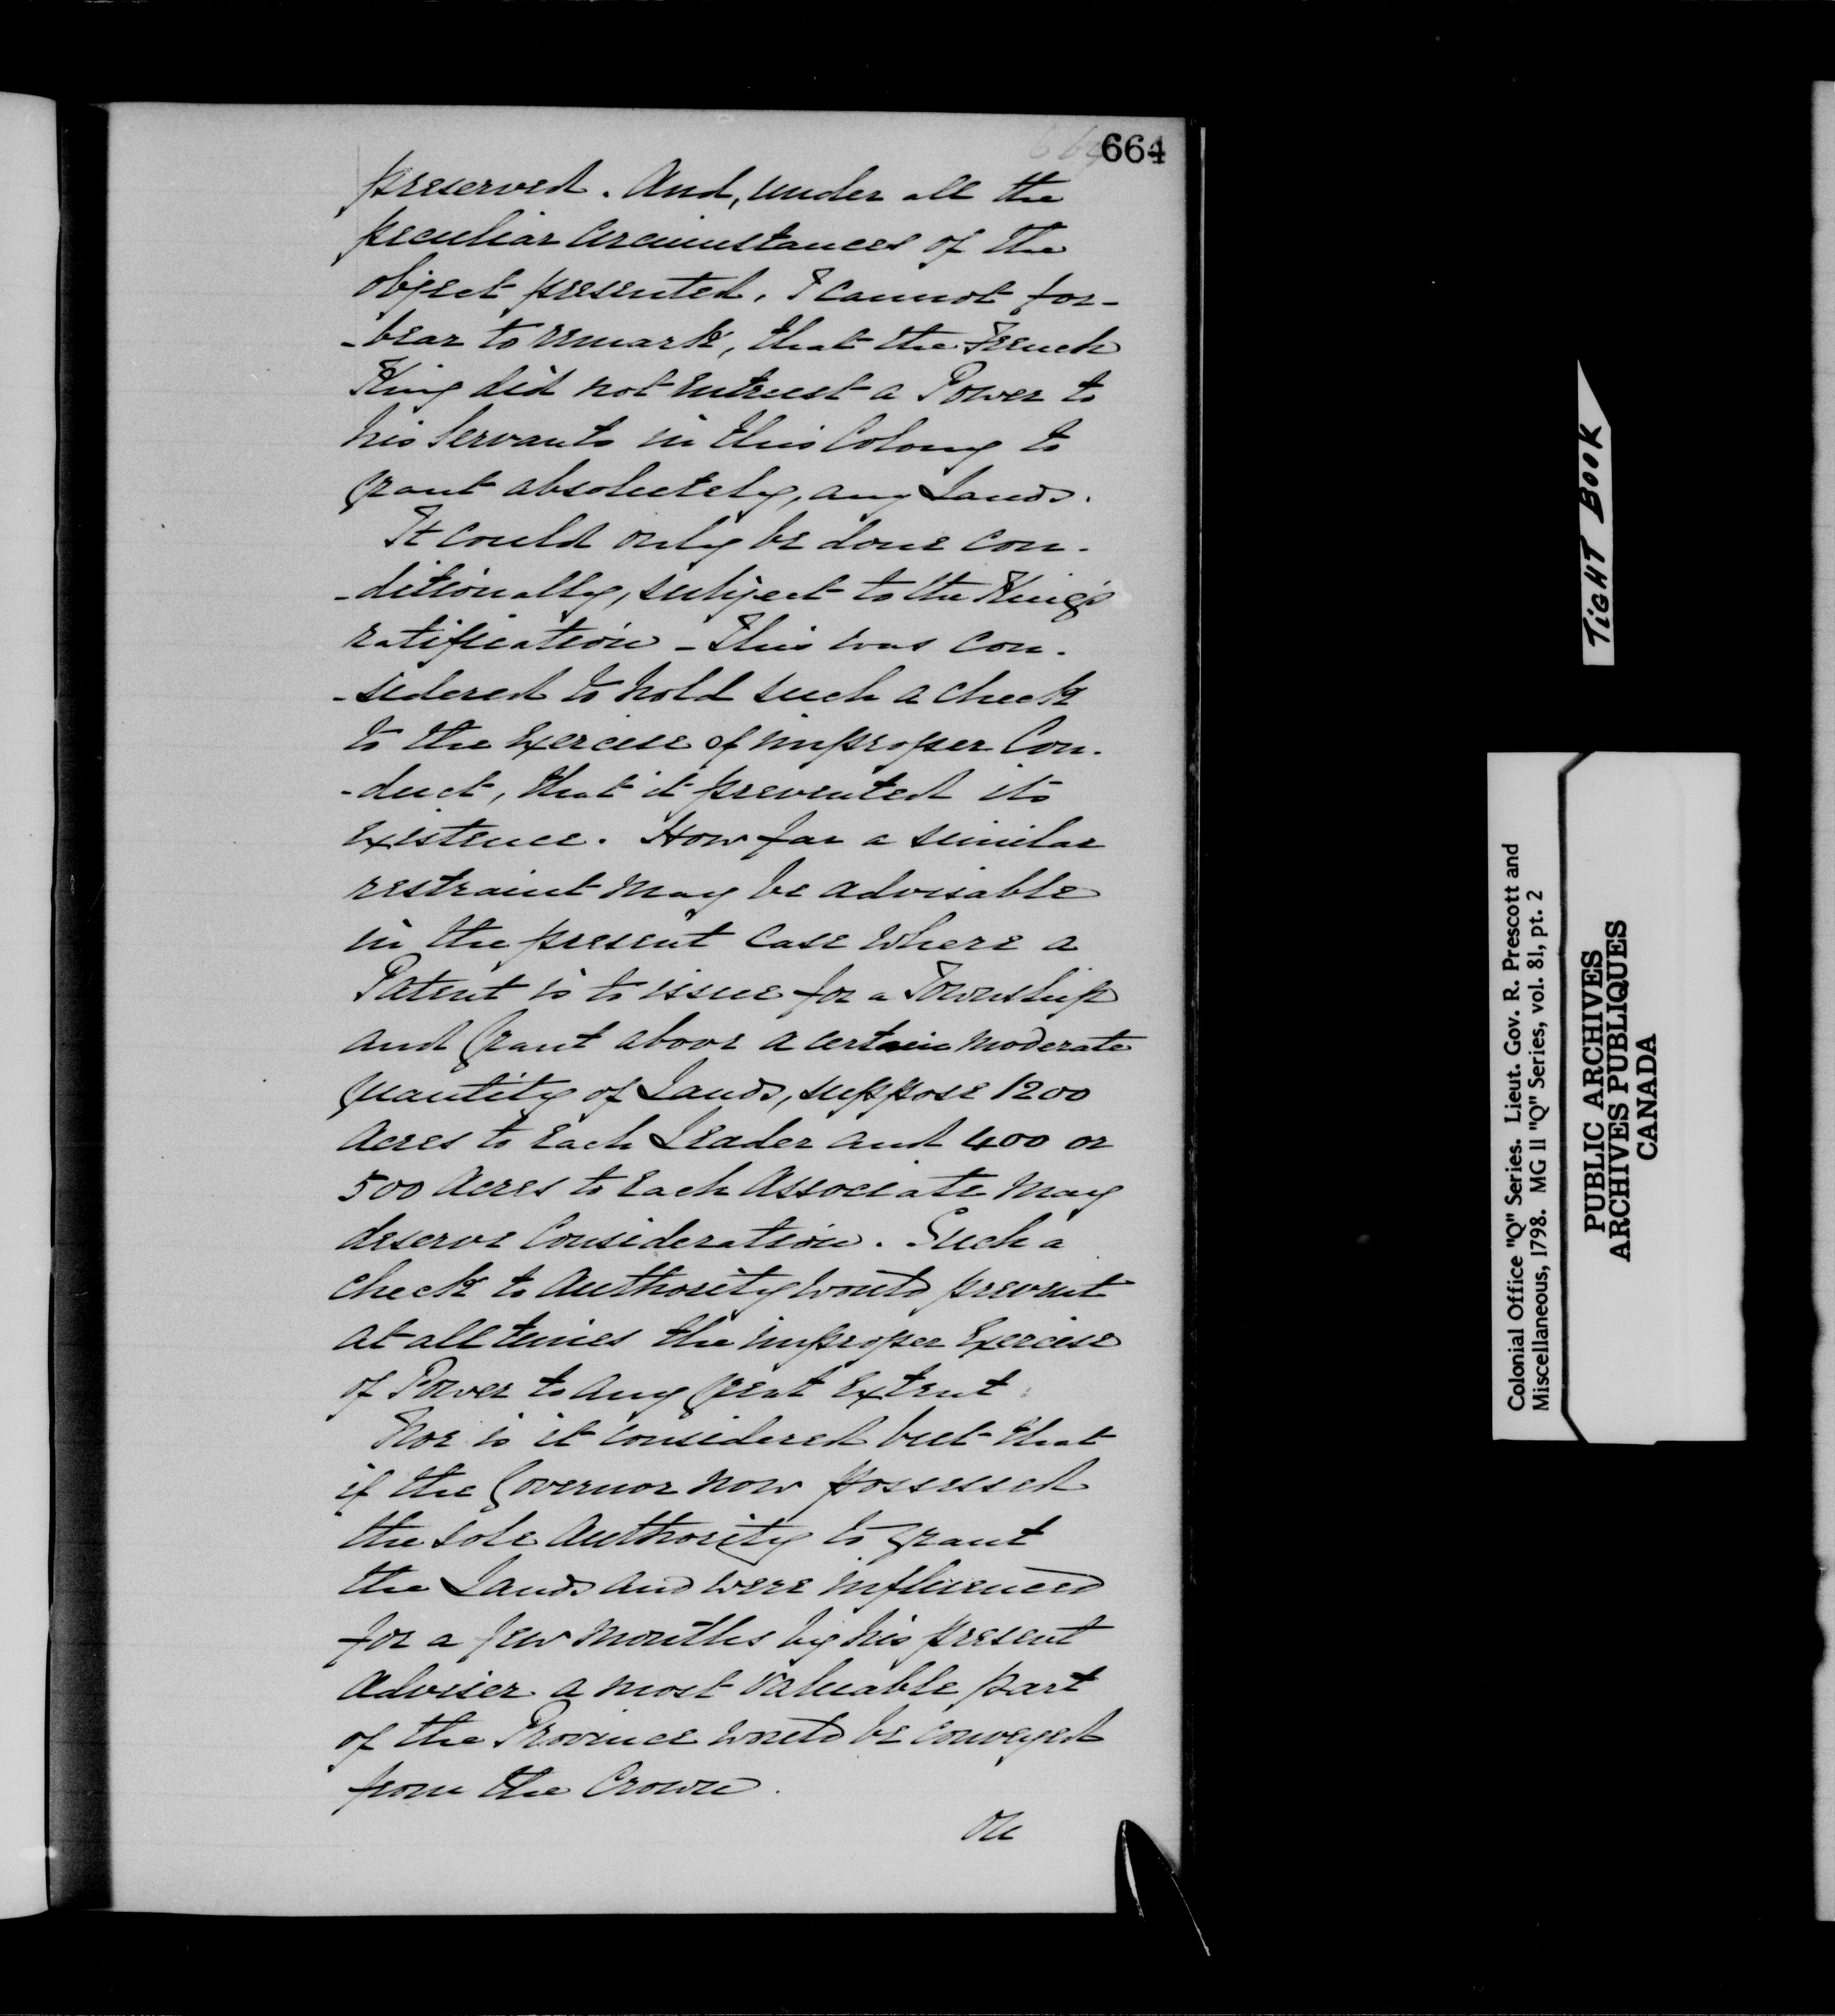 664
preserved. And, under all the
peculiar Circumstances of the
object presented, I cannot for-
-bear to remark, that the French
King did not entrust a Power to
his Servants in this Colony to
Grant absolutely, any Lands.
It could only be done con-
-ditionally, subject to the King's
ratification - This was con-
-sidered to hold such a check
to the Exercise of improper Con-
-duct, that it prevented its
Existence. How far a similar
restraint may be advisable
in the present case where a
Patent is to issue for a Township
and Grant above a certain moderate
Quantity of Lands, suppose 1200
Acres to each Leader and 400 or
500 Acres to each Associate may
deserve Consideration. Such a
check to Authority would prevent
at all times the improper Exercise
of Power to any great Extent.
Nor is it considered but that
if the Governor now possessed
the sole Authority to grant
the Lands and were influenced
for a few months by his present
Adviser a most valuable part
of the Province would be conveyed
from the Crown.
On
TIGHT BOOK
Colonial Office "Q" Series. Lieut. Gov. R. Prescott and
Miscellaneous, 1798. MG 11 "Q" Series, vol. 81, pt. 2
PUBLIC ARCHIVES
ARCHIVES PUBLIQUES
CANADA